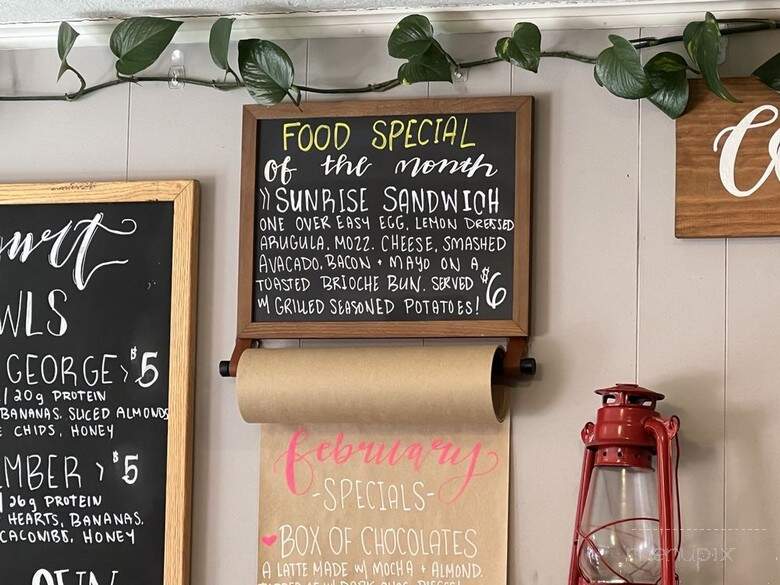 FOOD SPECIAL
of the month
» SUNRISE SANDWICH
ONE OVER EASY EGG, LEMON DRESSED
ARUGULA, MOZZ. CHEESE, SMASHED
AVACADO, BACON + MAYO ON A
TOASTED BRIOCHE BUN. SERVED
W/ GRILLED SEASONED POTATOES!
$6
WLS
GEORGE > $5
/ 20g PROTEIN
BANANAS, SLICED ALMONDS
CHIPS, HONEY
MBER > $5
/ 26g PROTEIN
HEARTS, BANANAS,
CACOMBS, HONEY
February
-SPECIALS-
BOX OF CHOCOLATES
A LATTE MADE W/ MOCHA + ALMOND.
menupix